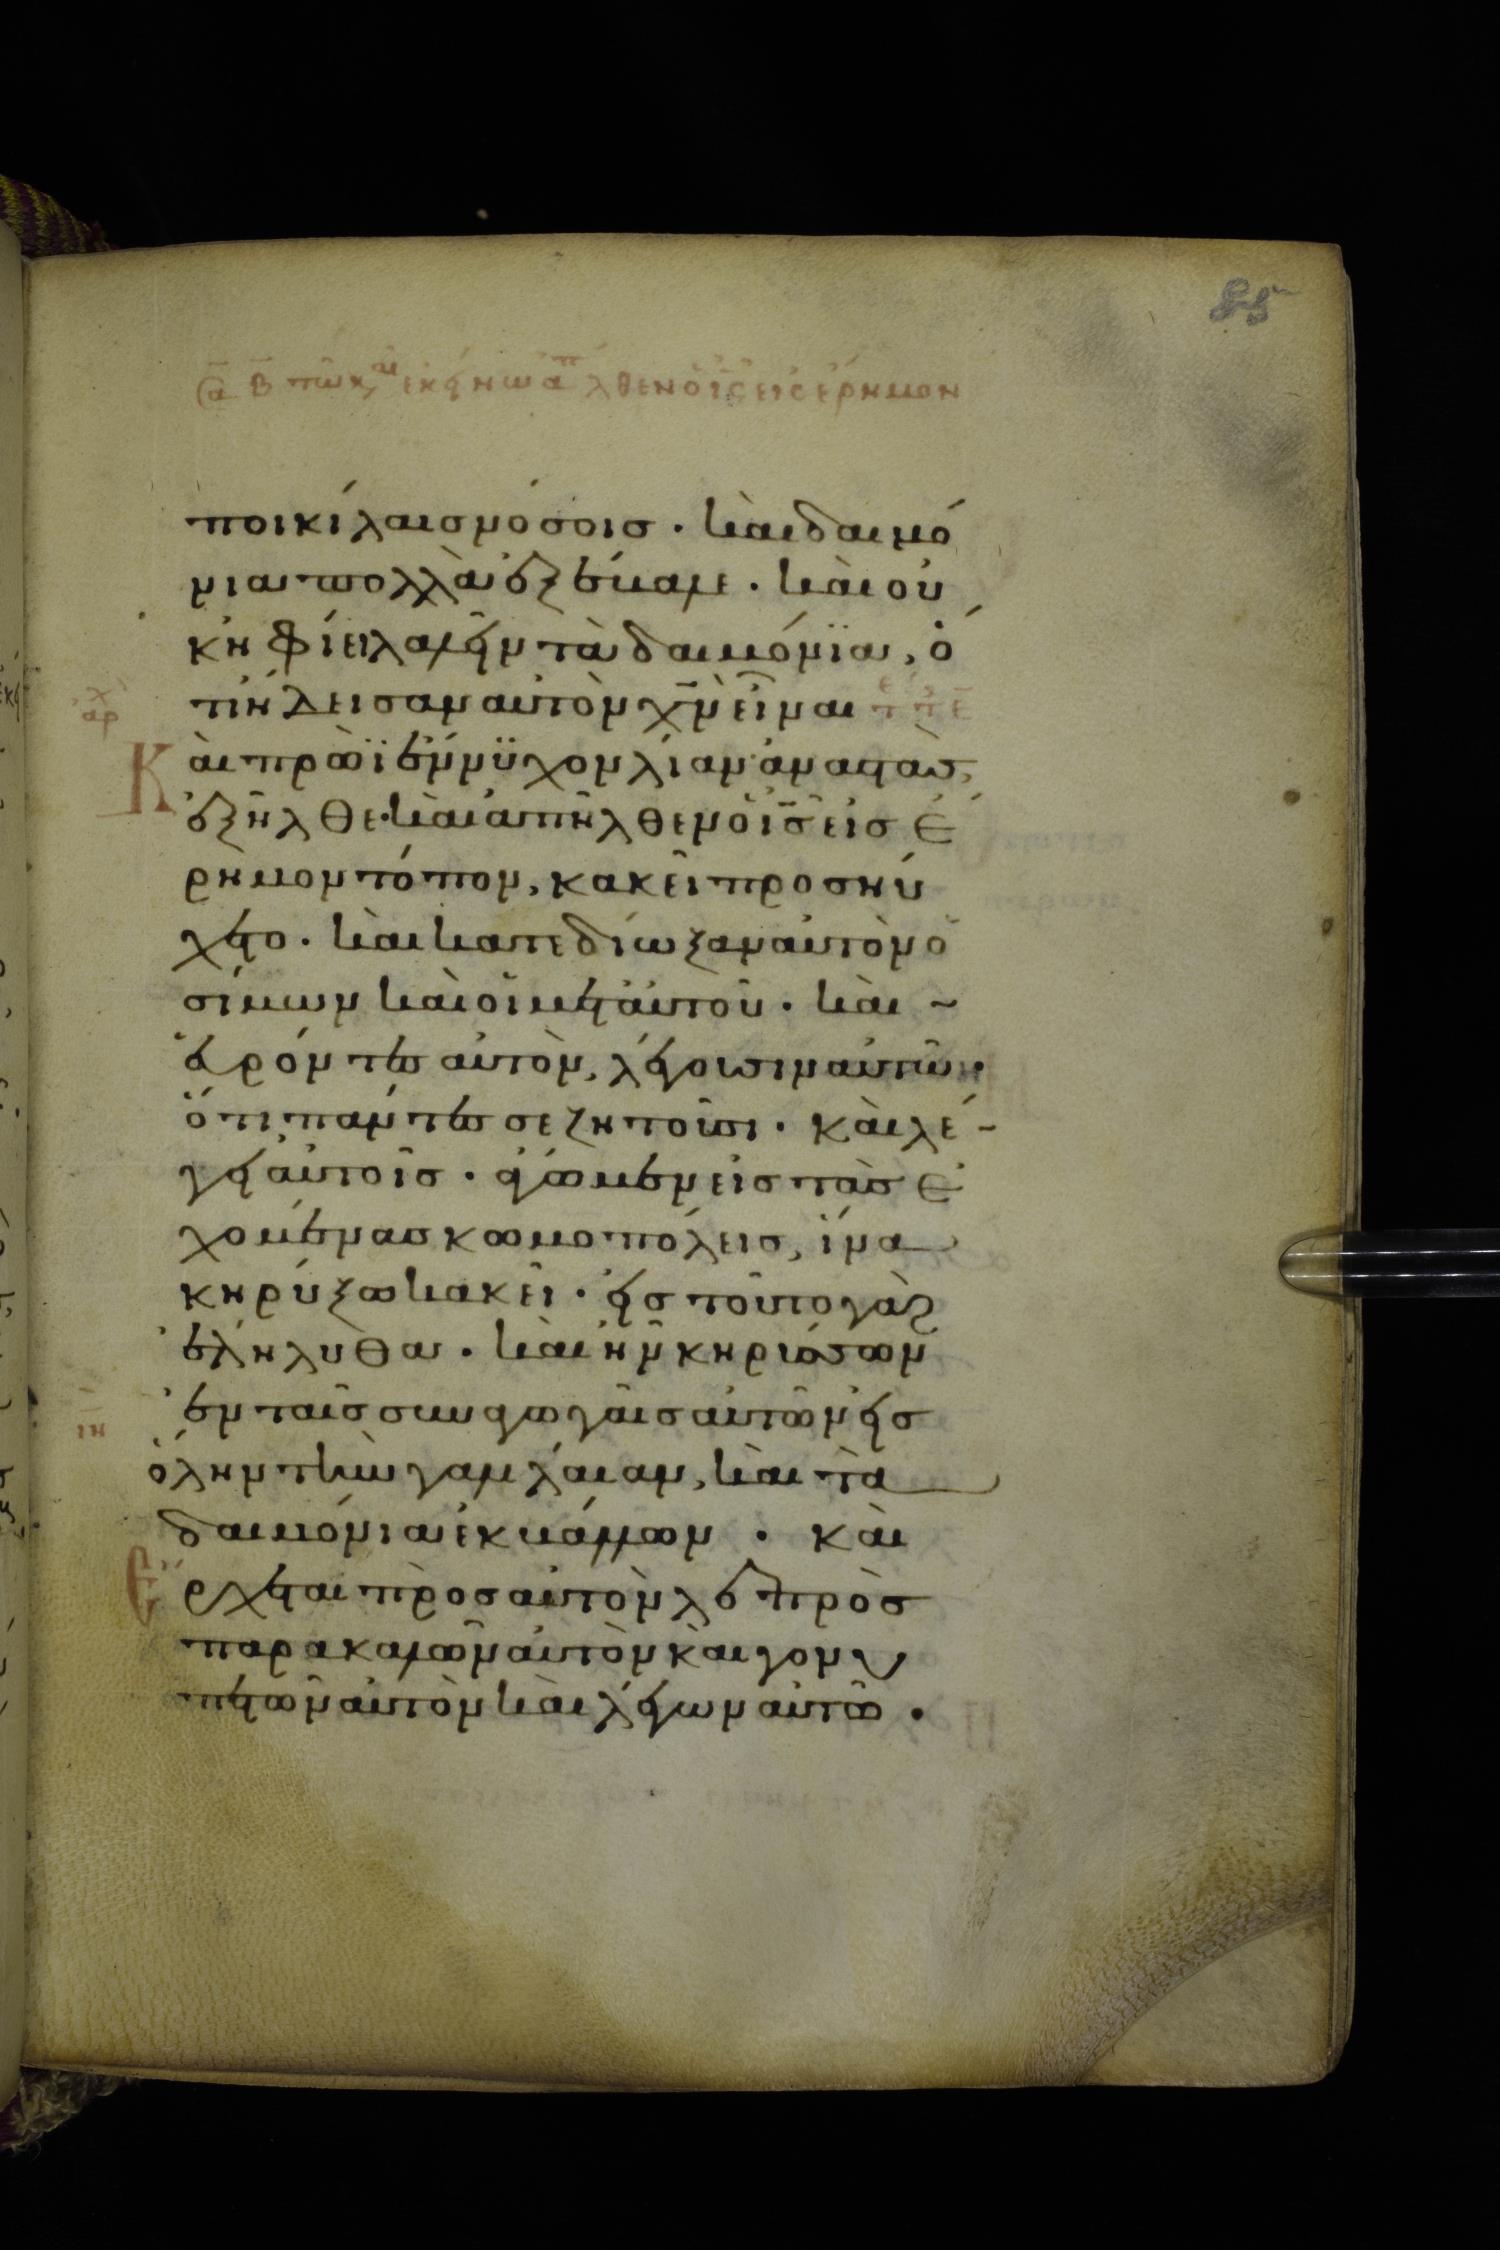 85
ποικίλαις νόσοις · καὶ δαιμό
νια πολλὰ ἐξέβαλε · καὶ οὐ
κ ἤφιει λαλεῖν τὰ δαιμόνϊα, ὁ
τι ἤδεισαν αὐτὸν χ̅ν̅ εἶναι
Καὶ πρωῒ ἔννϋχον λίαν ἀναστὰς,
ἐξῆλθε · καὶ ἀπῆλθεν ὁ ι̅ς̅ εἰς ἔ
ρημον τόπον, κακεῖ προσηύ
χετο · καὶ κατεδίωξαν αὐτὸν ὁ
σίμων καὶ οἱ μετ' αὐτοῦ · καὶ ~
εὑρόντες αὐτὸν, λέγουσιν αὐτῶ ·
ὅτι πάντες σε ζητοῦσι · καὶ λέ-
γει αὐτοῖς · ἄγωμεν εἰς τὰς ἐ
χομένας κωμοπόλεις, ἵνα
κηρύξω κακεῖ · εἰς τοῦτο γὰρ
ἐλήλυθα · καὶ ἦν κηρύσσων
ἐν ταῖς συναγωγαῖς αὐτῶν εἰς
ὅλην τὴν γαλιλαίαν, καὶ τὰ
δαιμόνια ἐκβάλλων · καὶ
Ἔρχεται πρὸς αὐτὸν λεπρὸς
παρακαλῶν αὐτὸν καὶ γονυ
πετῶν αὐτὸν καὶ λέγων αὐτῶ ·